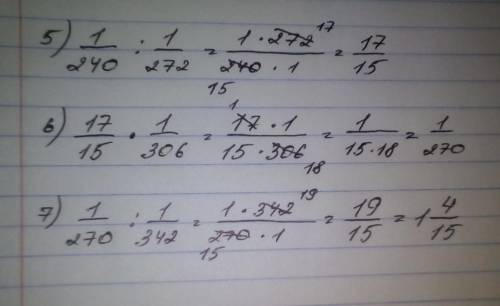 5) 1/240 : 1/272 = 1·272 17/240·1 15 = 17/15
6) 17/15 · 1/306 = 17 1·1/15·306 18 = 1/15·18 = 1/270
7) 1/270 : 1/342 = 1·342 19/270·1 15 = 19/15 = 1 4/15